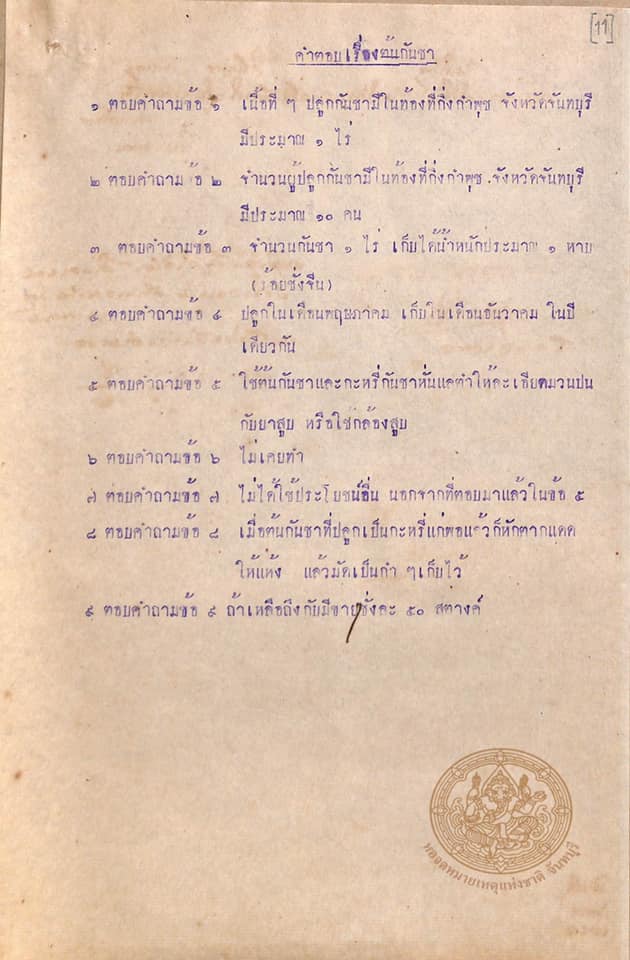 [11]
คำตอบเรื่องต้นกันชา
๑ ตอบคำถามข้อ ๑ เนื้อที่ ๆ ปลูกกันชามีในท้องที่กิ่งกำพุช จังหวัดจันทบุรี
มีประมาณ ๑ ไร่
๒ ตอบคำถาม ข้อ ๒ จำนวนผู้ปลูกกันชามีในท้องที่กิ่งกำพุช จังหวัดจันทบุรี
มีประมาณ ๑๐ คน
๓ ตอบคำถามข้อ ๓ จำนวนกันชา ๑ ไร่ เก็บได้น้ำหนักประมาณ ๑ หาย
(ร้อยชั่งจีน)
๔ ตอบคำถามข้อ ๔ ปลูกในเดือนพฤษภาคม เก็บในเดือนธันวาคม ในปี
เดียวกัน
๕ ตอบคำถามข้อ ๕ ใช้ต้นกันชาและกะหรี่กันชาหั่นแลตำให้ละเอียดมวนปน
กับยาสูบ หรือใช้กล้องสูบ
๖ ตอบคำถามข้อ ๖ ไม่เคยทำ
๗ ตอบคำถามข้อ ๗ ไม่ได้ใช้ประโยชน์อื่น นอกจากที่ตอบมาแล้วในข้อ ๕
๘ ตอบคำถามข้อ ๘ เมื่อต้นกันชาที่ปลูกเป็นกะหรี่แก่พอแล้วก็หักตากแดด
ให้แห้ง แล้วมัดเป็นกำ ๆ เก็บไว้
๙ ตอบคำถามข้อ ๙ ถ้าเหลือถึงกับมีขายชั่งละ ๕๐ สตางค์
หอจดหมายเหตุแห่งชาติ จันทบุรี